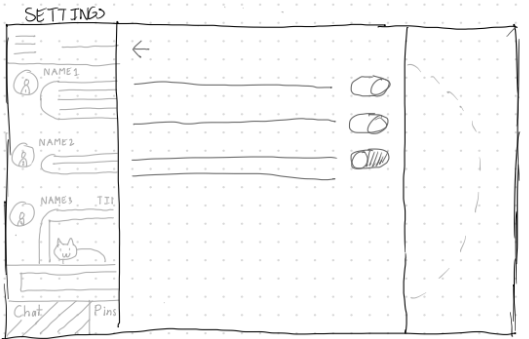 SETTINGS
NAME1
NAME2
NAME3
Chat
Pins